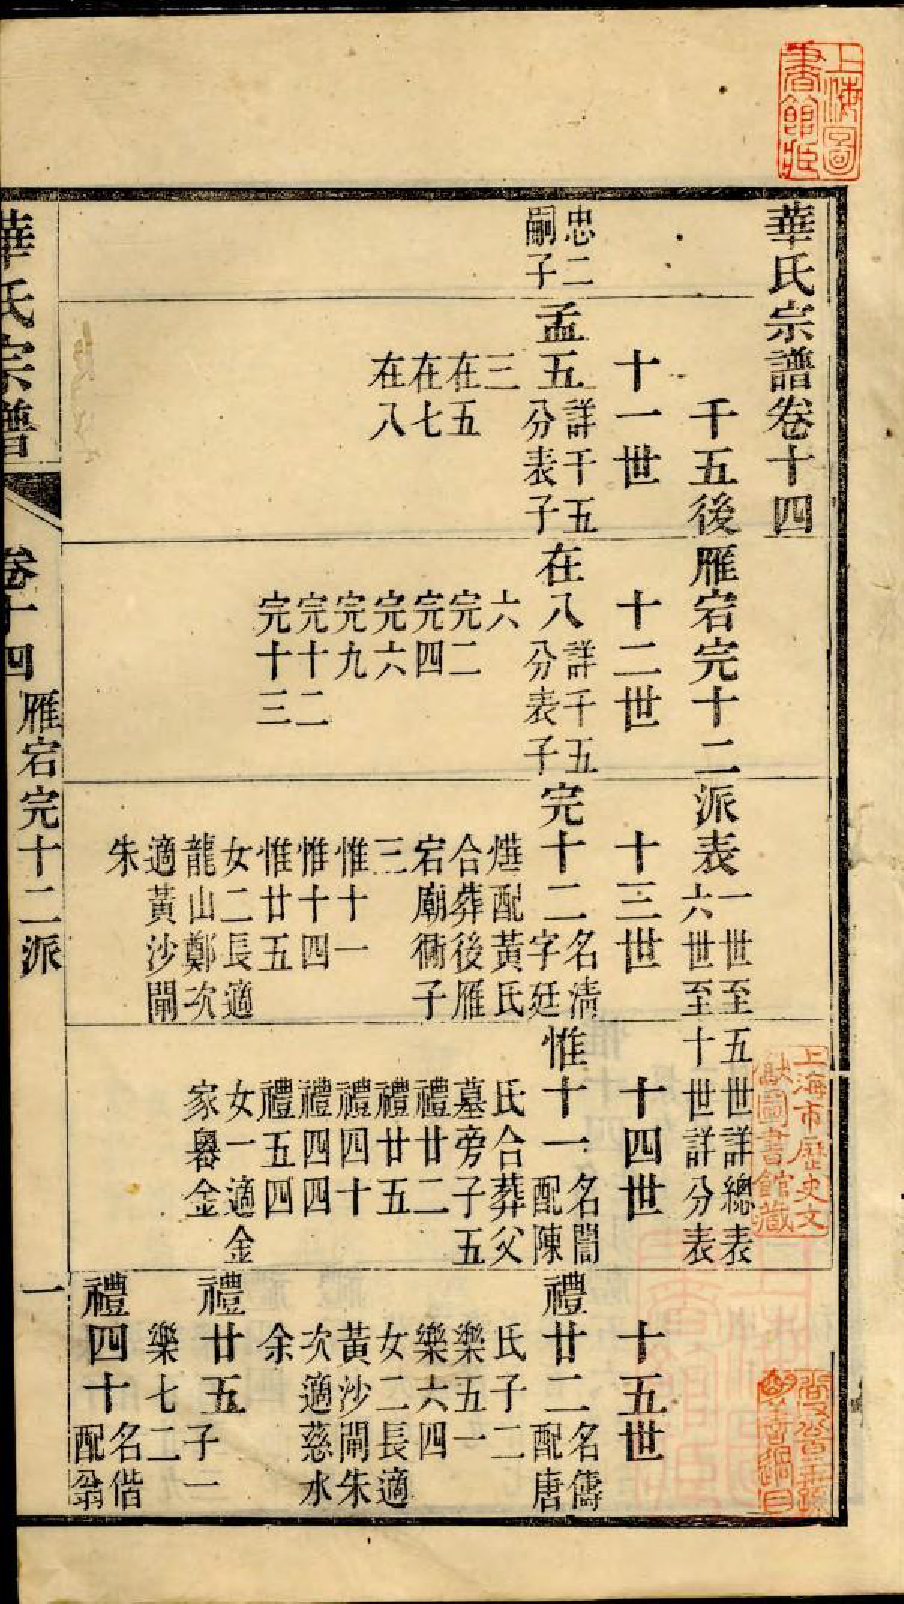 上海圖書館藏
華氏宗譜卷十四
千五後雁宕完十二派表一世至五世詳總表六世至十世詳分表
十一世
十二世
十三世
十四世
十五世
忠二
嗣子
孟五詳千五
分表子
三
在五
在七
在八
在八詳千五
分表子
六
完二
完四
完六
完九
完十二
完十三
完十二名淸
字廷
燵配黃氏
合葬後雁
宕廟衕子
三
惟十一
惟十四
惟廿五
女二長適
龍山鄭次
適黃沙閘
朱
惟十一名誾
配陳
氏合葬父
墓旁子五
禮廿二
禮廿五
禮四十
禮四四
禮五四
女一適金
家嶴金
禮廿二名儔
配唐
氏子二
樂五一
樂六四
女二長適
黃沙閘朱
次適慈水
余
禮廿五子一
樂七二
禮四十名偕
配翁
華氏宗譜
卷十四
雁宕完十二派
一
上海市歷史文
獻圖書館藏